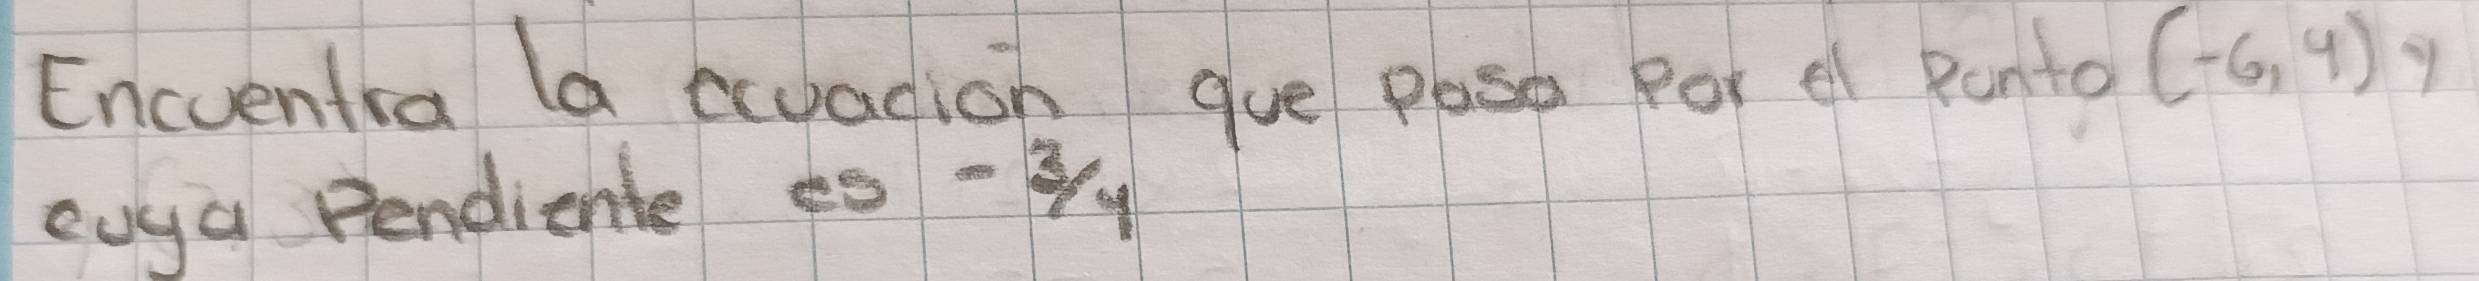 Encuentra la ecuación que pasa por el punto (-6, 4) y
cuya Pendiente es - 3/4